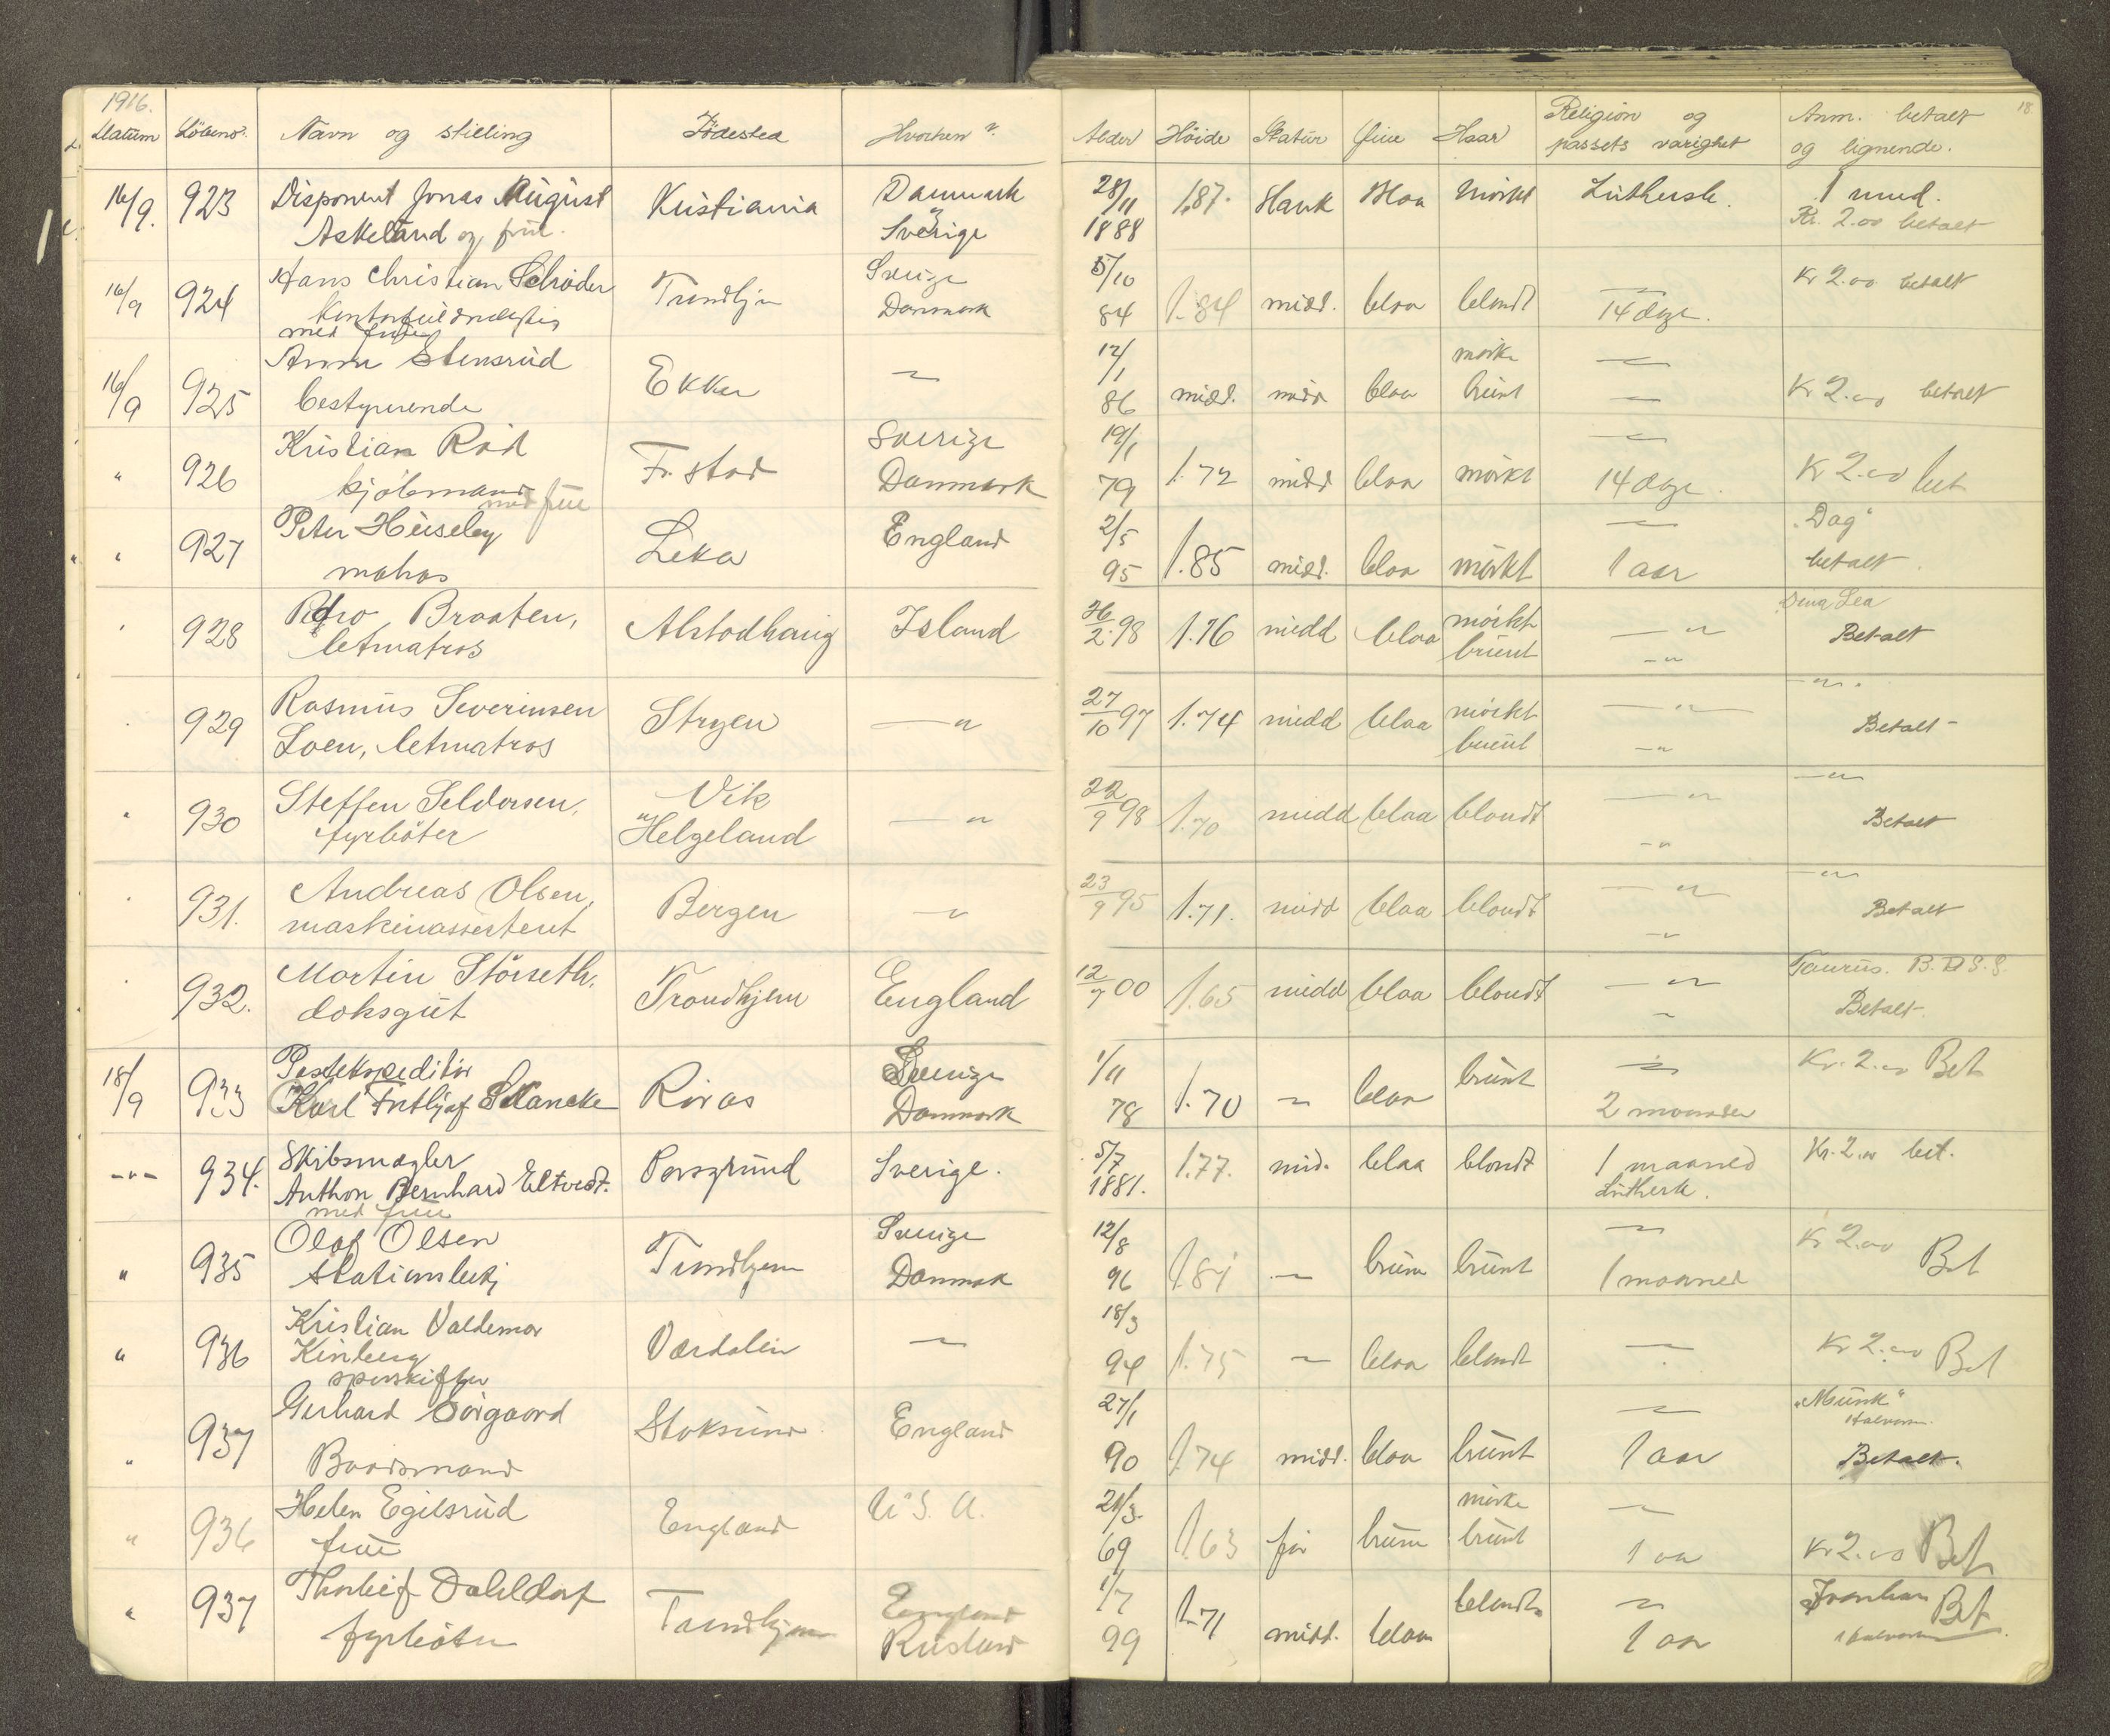 1916. 18
Datum Löbeno. Navn og stilling Födested Hvorhen? Alder Höide Statur Öine Haar Religion og passets varighet Anm. betalt og lignende.
16/9. 923 Disponent Jonas August Kristiania Danmark 28/11 1.87. slank blaa mörkt Luthersk. 1 mnd.
Askeland og frue. Sverige 1888 Kr. 2.00 betalt
16/9 924 Hans Christian Schröder Trondhjem Sverige 5/10 Kr 2.00 betalt
med frue Danmark 84 1.84 midd. blaa blondt 14 dage.
16/9 925 Anna Stensrud Ekker — 12/1 mörke —
bestyrerende 86 midd. midd blaa brunt — Kr 2.00 betalt
" 926 Kristian Röd Fr. stad Sverige 19/1 —
kjöbmand med frue Danmark 79 1.72 midd blaa mörkt 14 dage. Kr 2.00 bet
" 927 Peter Huseby Leka England 2/5 — "Dag"
matros 95 1.85 midd. blaa mörkt 1 aar betalt.
" 928 Pedro Braaten, Alstadhaug Island 26/2 98 1.76 midd blaa mörkt —"—
letmatros brunt —"— Betalt
" 929 Rasmus Severinsen Stryen —"— 27/10 97 1.74 midd blaa mörkt —"— —"—
Loen, letmatros brunt —"— Betalt
" 930 Steffen Seldorsen, Vik —"— 22/9 98 1.70 midd blaa blondt —"— —"—
fyrböter Helgeland —"— Betalt
" 931. Andreas Olsen, Bergen —"— 23/9 95 1.71. midd blaa blondt —"— —"—
maskinassistent —"— Betalt
" 932. Martin Störseth, Trondhjem England 12/7 00 1.65 midd blaa blondt —"— Taurus. B.D.S.S.
doksgut —"— Betalt.
18/9 933 Postekspeditör Röros Sverige 1/11 brunt — Kr. 2.00 Bet
Karl Frithjof Schancke Danmark 78 1.70 — blaa 2 maaneder
-"- 934. Skibsmægler Porsgrund Sverige. 5/7 1.77. mid. blaa blondt 1 maaned Kr. 2.00 bet.
Anthon Bernhard Eltvedt. 1881. Luthersk.
med frue
" 935 Olaf Olsen Trondhjem Sverige 12/8 — Kr 2.00
stationsbetj Danmark 96 1.81 — brune brunt 1 maaned Bet
" 936 Kristian Valdemar Værdalen — 18/3
Kinberg 94 1.75 — blaa blondt — Kr 2.00 Bet
sporskifter
" 937 Gerhard Sörgaard Stoksund England 27/1 — "Munk"
Baadsmand 90 1.74 midd. blaa brunt 1 aar Betalt.
" 936 Helen Egilsrud England U.S.A. 21/3. mörke —
frue 69 1.63 før brune brunt 1 aar Kr 2.00 Bet
" 937 Thorleif Dahldorf Trondhjem England 1/7 blondt — Ivanhan Bet
fyrböter Rusland 99 1.71 midd. blaa 1 aar